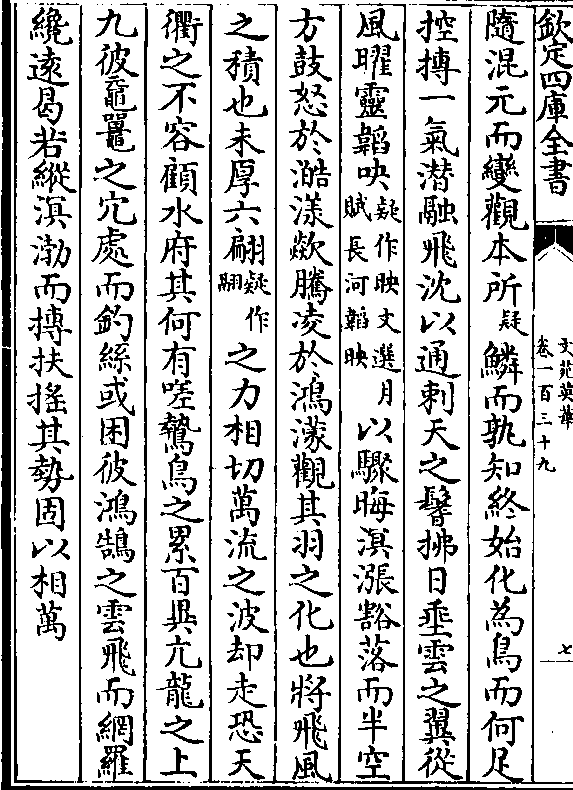 欽定四庫全書
文苑英華
卷一百三十九
七
隨混元而變觀本所疑鱗而孰知終始化為鳥而何足
控搏一氣潛融飛沈以通刺天之鬐拂日垂雲之翼從
風曜靈韜吷疑作映文選月賦長河韜映以驟晦溟漲豁落而半空
方鼓怒於澔漾歘騰凌於鴻濛觀其羽之化也將飛風
之積也未厚六翩疑作翮之力相切萬流之波却走恐天
衢之不容顧水府其何有嗟鷙鳥之累百與亢龍之上
九彼黿鼉之穴處而釣絲或困彼鴻鵠之雲飛而網羅
纔遠曷若縱溟渤而摶扶搖其勢固以相萬